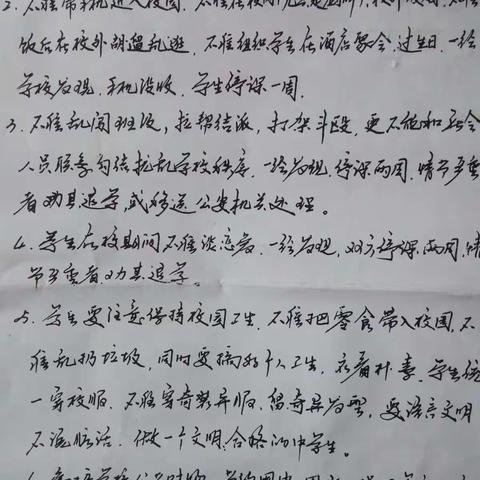 2. 不准带手机进入校园. 不准在校园
饭后在校外胡逛乱逛. 不准组织学生在酒店聚会.过生日.一经
学校发现.手机没收. 学生停课一周.
3. 不准乱闯班级, 拉帮结派, 打架斗殴, 更不能和社会
人员联系勾结扰乱学校秩序. 一经发现.停课两周.情节严重
者劝其退学,或移送公安机关处理。
4. 学生在校期间不准谈恋爱. 一经发现, 双方停课两周,情
节严重者.劝其退学。
5. 学生要注意保持校园卫生. 不准把零食带入校园.不
准乱扔垃圾. 同时要搞好个人卫生, 衣着朴素. 学生统
一穿校服. 不准穿奇装异服. 留奇异发型, 要语言文明
不说脏话. 做一个文明.合格的中学生。